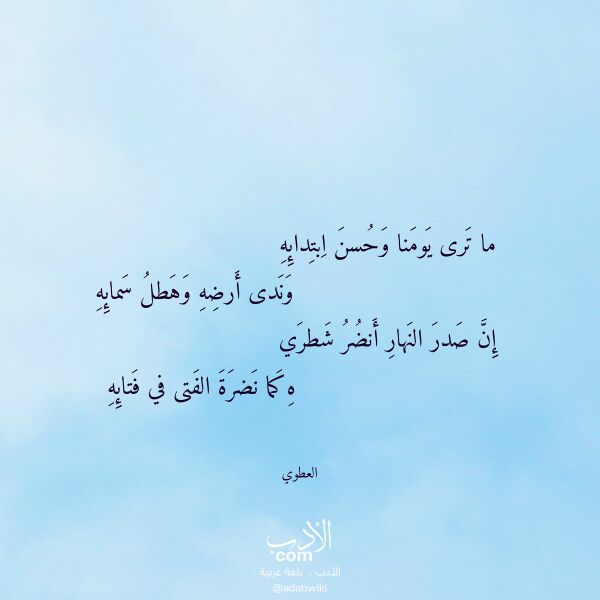 ما تَرى يَومَنا وَحُسنَ اِبتِدائِهِ
وَنَدى أَرضِهِ وَهَطلُ سَمائِهِ
إِنَّ صَدرَ النَهارِ أَنضُرُ شَطرَي
هِ كَما نَضرَةَ الفَتى في فَتائِهِ
العطوي
الأدب
.com
الأدب .. بلغة عربية
@adabwiki